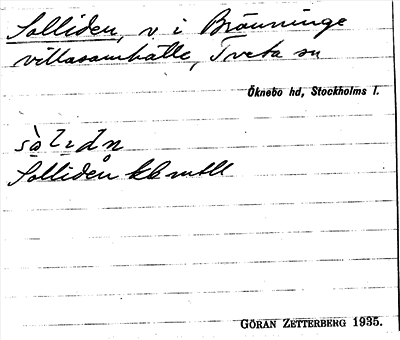 Solliden, v i Bränninge
villasamhälle, Tveta sn
Öknebo hd, Stockholms l.
Solliden kb mtll
GÖRAN ZETTERBERG 1935.